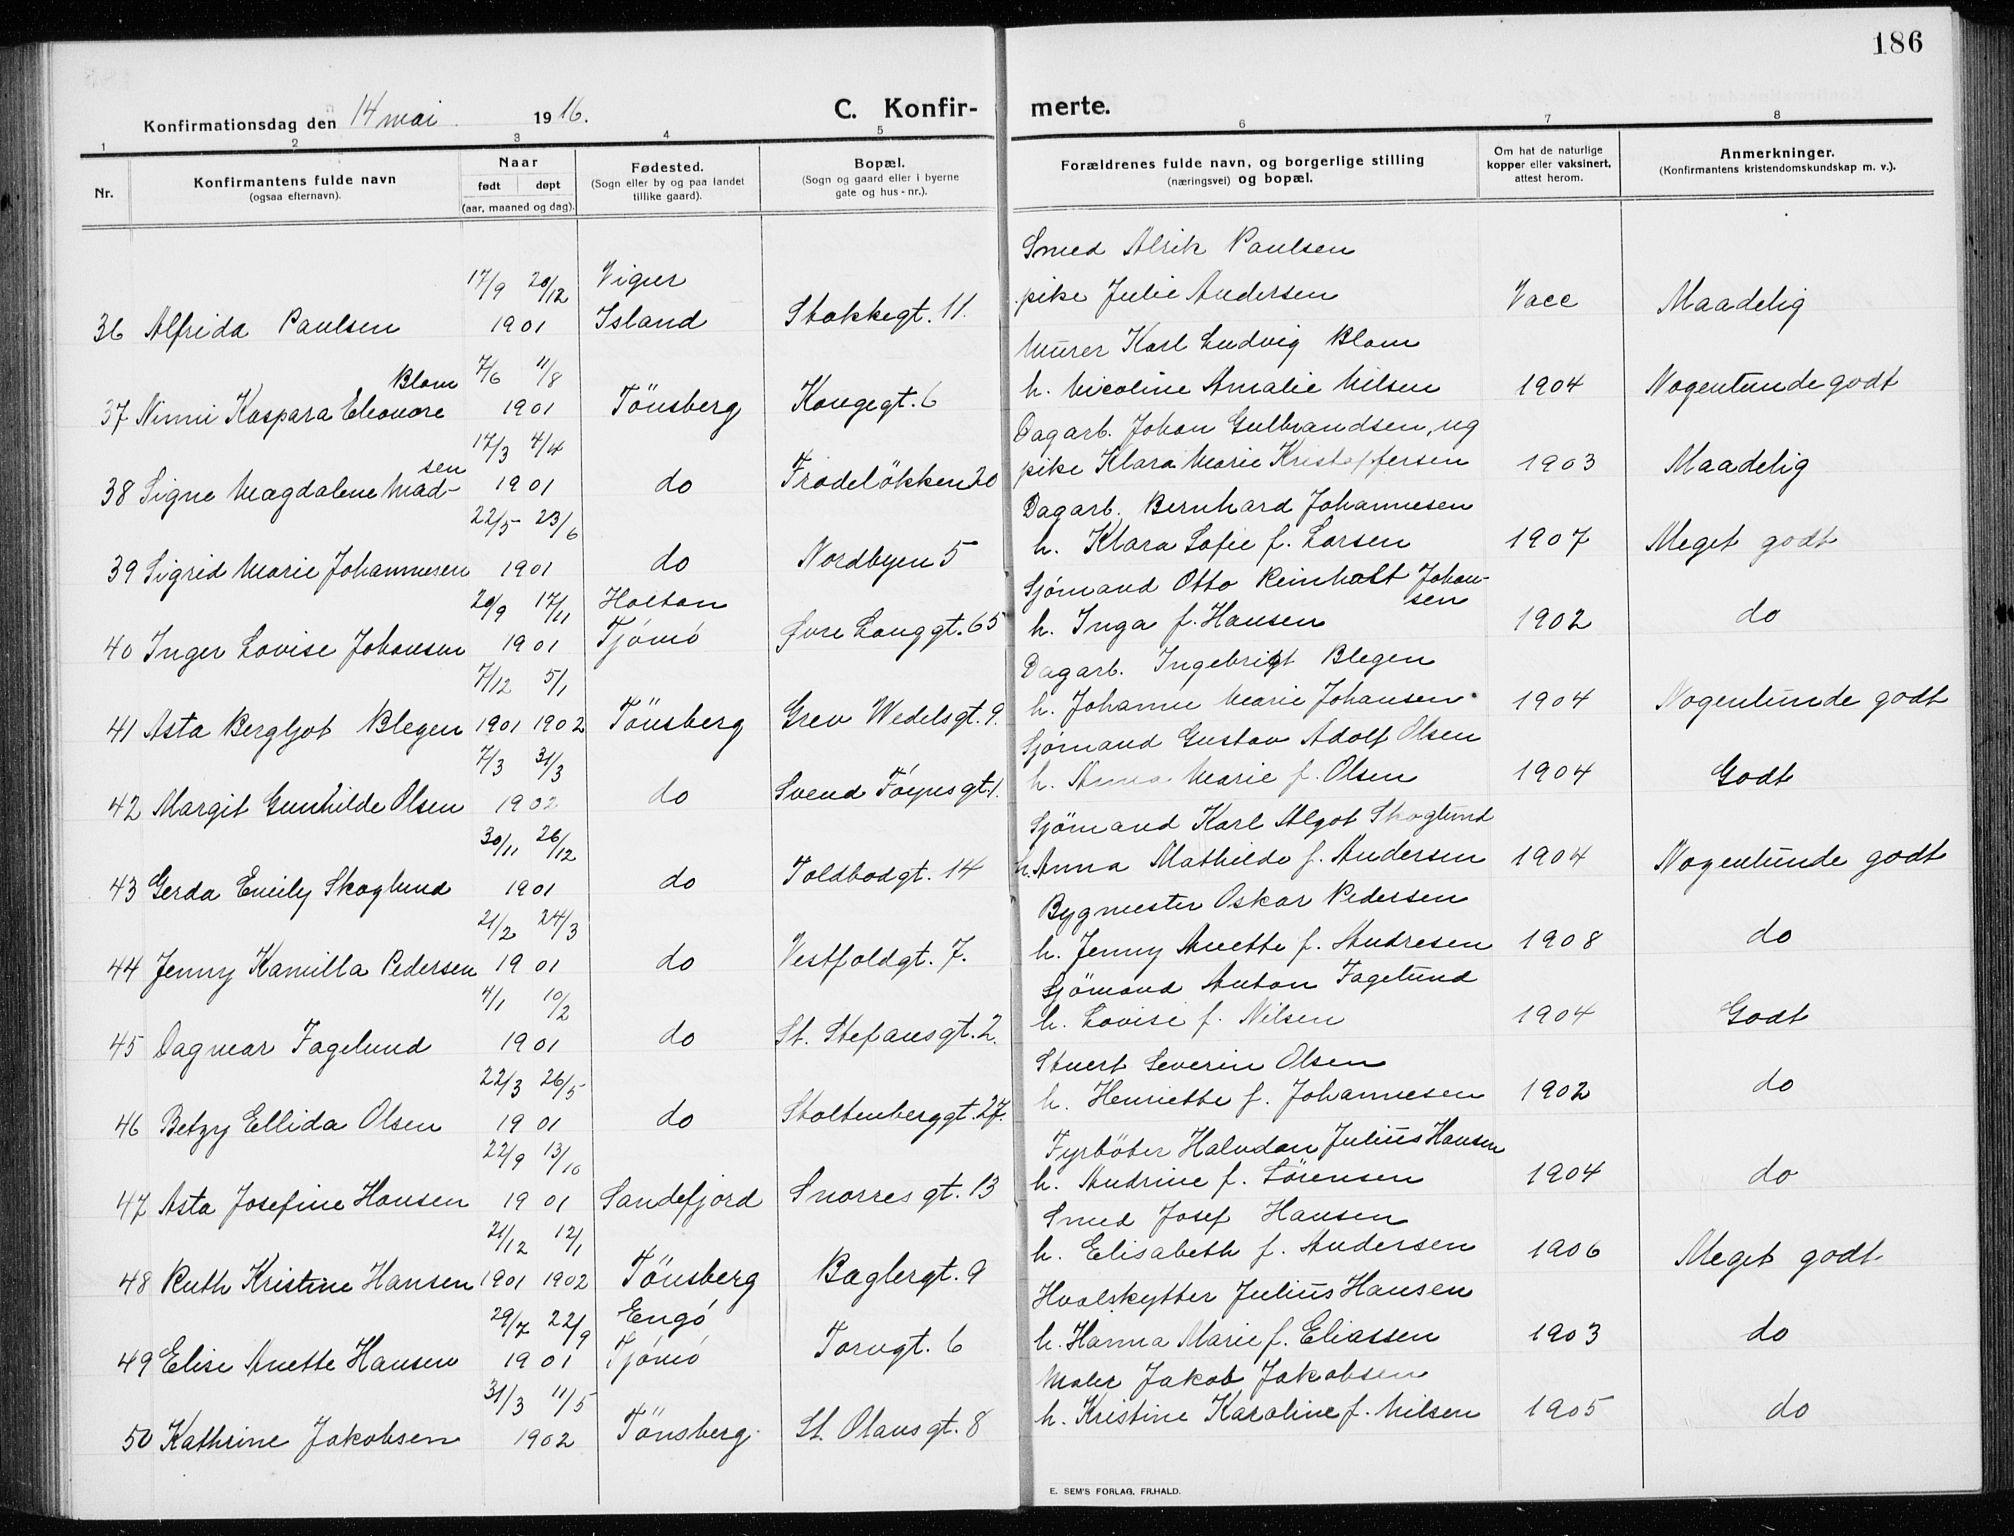 186
Konfirmationsdag den 14 mai 1916. C. Konfir- merte.
1 2 3 4 5 6 7 8
Nr. Konfirmantens fulde navn (ogsaa efternavn). Naar født døpt (aar, maaned og dag). Fødested. (Sogn eller by og paa landet tillike gaard). Bopæl. (Sogn og gaard eller i byerne gate og hus-nr.). Forældrenes fulde navn, og borgerlige stilling (næringsvei) og bopæl. Om hat de naturlige kopper eller vaksinert, attest herom. Anmerkninger. (Konfirmantens kristendomskundskap m. v.).
Smed Alrik Paulsen
17/9 20/12 Vigur pike Julie Andersen Vacc Maadelig
36 Alfrida Paulsen 1901 Island Stokkegt. 11.
Murer Karl Ludvig Blom
Blom 7/6 11/8 h. Nicoline Amalie Nilsen 1904 Nogenlunde godt
37 Ninni Kaspara Eleonore 1901 Tönsberg Kongegt. 6
Dagarb. Johan Gulbrandsen, ug
sen 17/3 4/4 pike Klara Marie Kristoffersen 1903 Maadelig
38 Signe Magdalene Mad- 1901 do Frodelökken 20
Dagarb. Bernhard Johannesen
22/5 23/6 h. Klara Sofie f. Larsen 1907 Meget godt
39 Sigrid Marie Johannesen 1901 do Nordbyen 5
Sjømand Otto Reinholt Johan-
sen
20/9 17/11 Holtan h. Inga f. Hansen 1902 do
40 Inger Lovise Johansen 1901 Tjømö Øvre Langgt. 65
Dagarb. Ingebrigt Blegen
7/12 5/1 h. Johanne Marie Johansen 1904 Nogenlunde godt
41 Asta Bergljot Blegen 1901 1902 Tönsberg Grev Wedelsgt. 9.
Sjømand Gustav Adolf Olsen
7/3 31/3 h. Anna Marie f. Olsen 1904 Godt
42 Margit Gunhilde Olsen 1902 do Svend Föynsgt. 1.
Sjömand Karl Algot Skoglund
30/11 26/12 h. Anna Mathilde f. Andersen 1904 Nogenlunde godt
43 Gerda Emily Skoglund 1901 do Toldbodgt. 14
Bygmester Oskar Pedersen
21/2 24/3 h. Jenny Anette f. Andresen 1908 do
44 Jenny Kamilla Pedersen 1901 do Vestfoldgt. 7.
Sjömand Anton Fagelund
4/1 10/2 h. Lovise f. Nilsen 1904 Godt
45 Dagmar Fagelund 1901 do St. Stefansgt. 2.
Stuert Severin Olsen
22/3 26/5 h. Henriette f. Johannesen 1902 do
46 Betzy Ellida Olsen 1901 do Stoltenberggt. 27.
Fyrböter Halvdan Julius Hansen
22/9 13/10 h. Andrine f. Sörensen 1904 do
47 Asta Josefine Hansen 1901 Sandefjord Snorresgt. 13
Smed Josef Hansen
21/12 12/1 h. Elisabeth f. Andersen 1906 Meget godt
48 Ruth Kristine Hansen 1901 1902 Tönsberg Baglergt. 9
Hvalskytter Julius Hansen
29/7 22/9 Engö h. Hanna Marie f. Eliassen 1903 do
49 Elise Anette Hansen 1901 Tjömö Torvgt. 6
Maler Jakob Jakobsen
31/3 11/5 h. Kristine Karoline f. Nilsen 1905 do
50 Kathrine Jakobsen 1902 Tönsberg. St. Olausgt. 8
E. SEM'S FORLAG, FR.HALD.